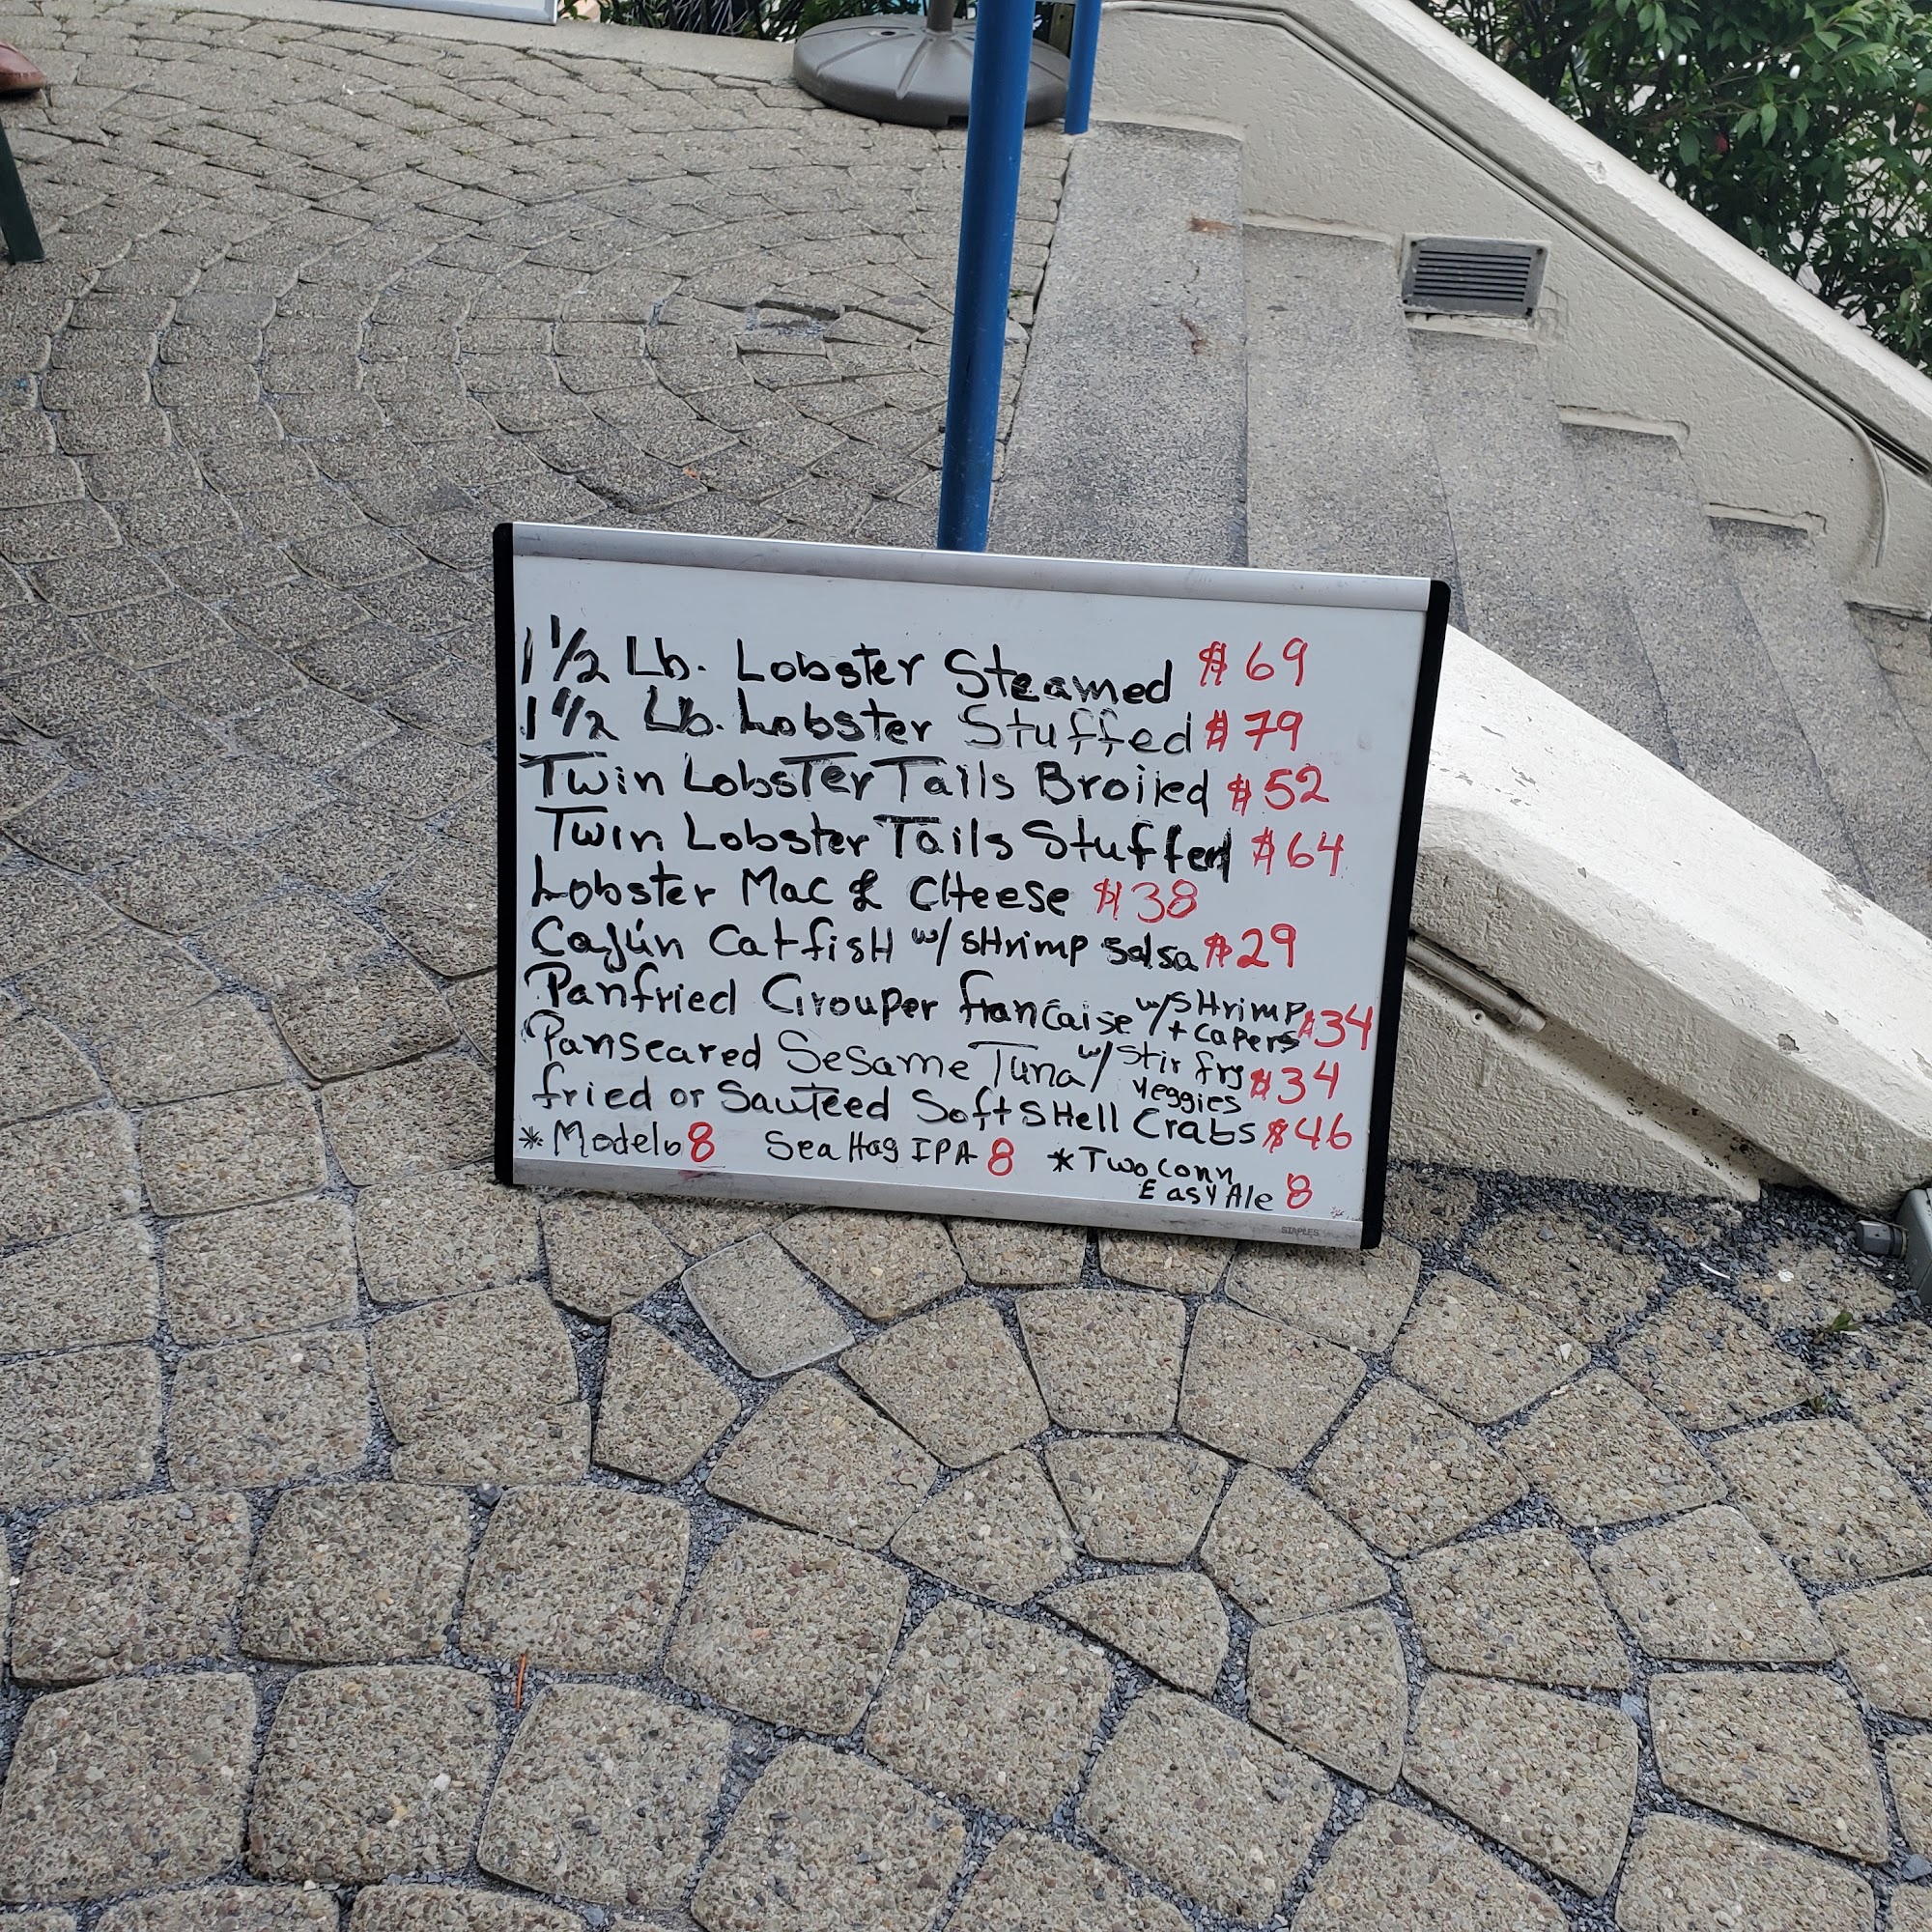 1 1/2 Lb. Lobster Steamed $69
1 1/2 Lb. Lobster Stuffed $79
Twin Lobster Tails Broiled $52
Twin Lobster Tails Stuffed $64
Lobster Mac & CHeese $38
Cajún CatfisH w/ sHrimp salsa $29
Panfried Grouper francaise w/ sHrimp + capers $34
Panseared Sesame Tuna w/ Stir fry veggies $34
fried or Sauteed Soft SHell Crabs $46
* Modelo 8 Sea Hag IPA 8 * Two Conn Easy Ale 8
STAPLES